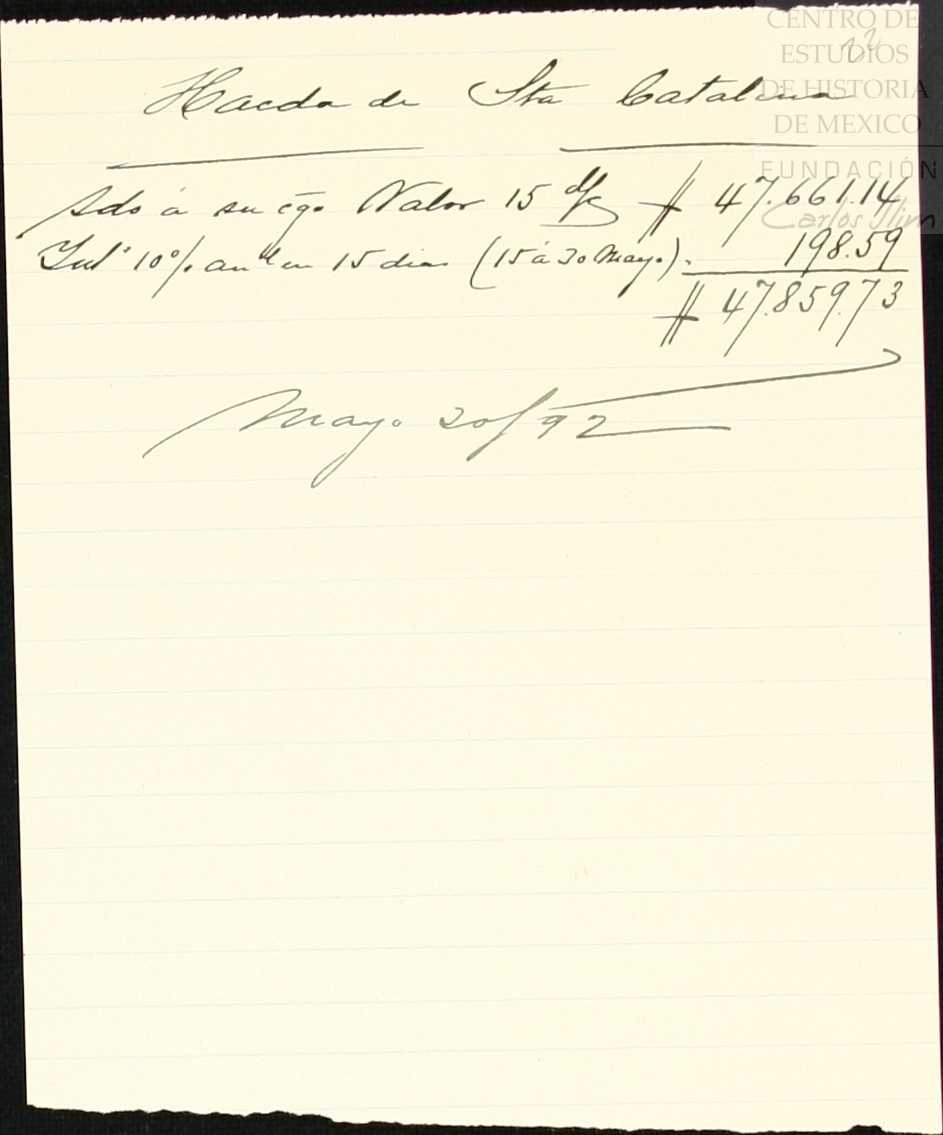 CENTRO DE
ESTUDIOS
DE HISTORIA
DE MEXICO
FUNDACIÓN
Carlos Slim
22
Hacda de Sta Catalina
Sdo á su cgo Valor 15 d/c $ 47.661.14
Int° 10% anl en 15 dias (15 á 30 Mayo). 198.59
$ 47.859.73
Mayo 30/92